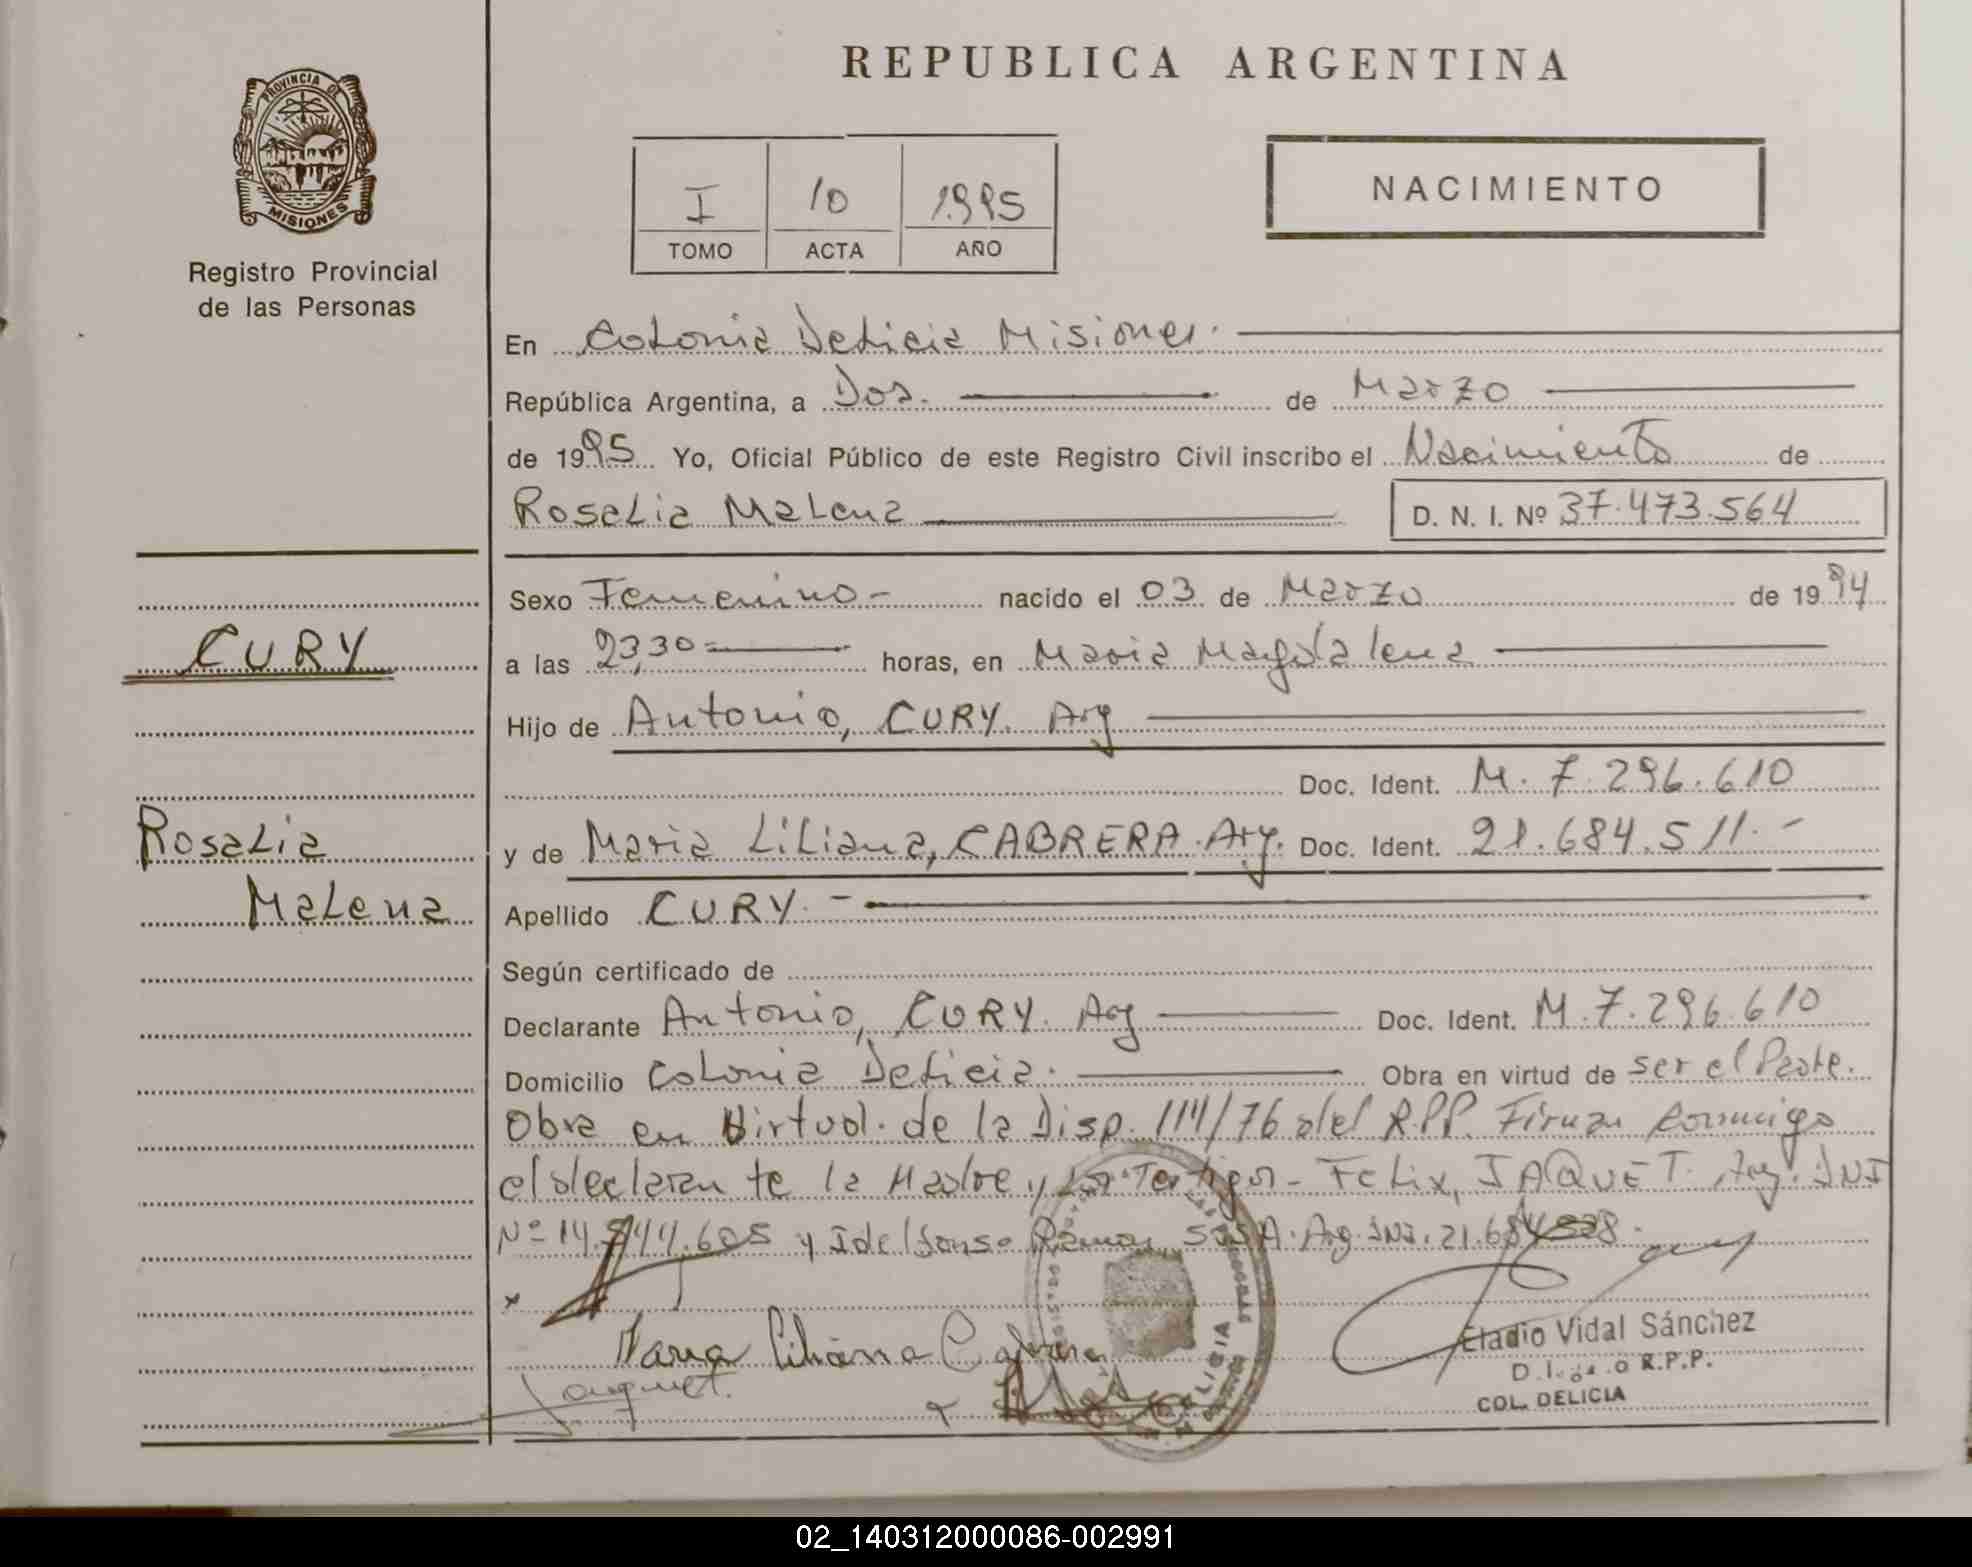 REPUBLICA ARGENTINA
PROVINCIA DE MISIONES
Registro Provincial
de las Personas
I 10 1995
TOMO ACTA AÑO
NACIMIENTO
En Colonia Delicia Misiones.
República Argentina, a Dos. de Marzo
de 1995 Yo, Oficial Público de este Registro Civil inscribo el Nacimiento de
Rosalia Malena D. N. I. Nº 37.473.564
CURY
Rosalia
Malena
Sexo Femenino- nacido el 03 de Marzo de 1994
a las 23,30= horas, en Maria Magdalena
Hijo de Antonio, CURY. Arg
Doc. Ident. M. 7.296.610
y de Maria Liliana, CABRERA. Arg. Doc. Ident. 21.684.511.-
Apellido CURY. -
Según certificado de
Declarante Antonio, CURY. Arg Doc. Ident. M.7.296.610
Domicilio Colonia Delicia. Obra en virtud de ser el Padre.
Obra en Virtud. de la Disp. 114/76 del R.P.P. Firman conmigo
el declarante la Madre y los Testigos- Felix, JAQUET. Arg. DNI
Nº 14. .605 y Idelfonso Ramon, SOSA. Arg. DNI. 21.684.
x
Maria Liliana Cabrera
Jaquet.
Eladio Vidal Sánchez
R.P.P.
COL. DELICIA
02_140312000086-002991